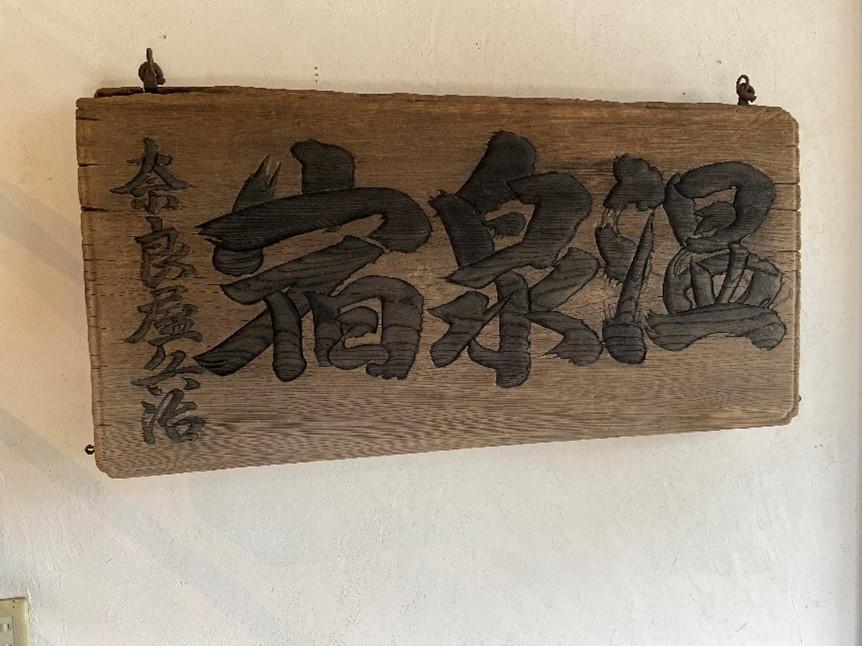 温泉宿
奈良屋兵治